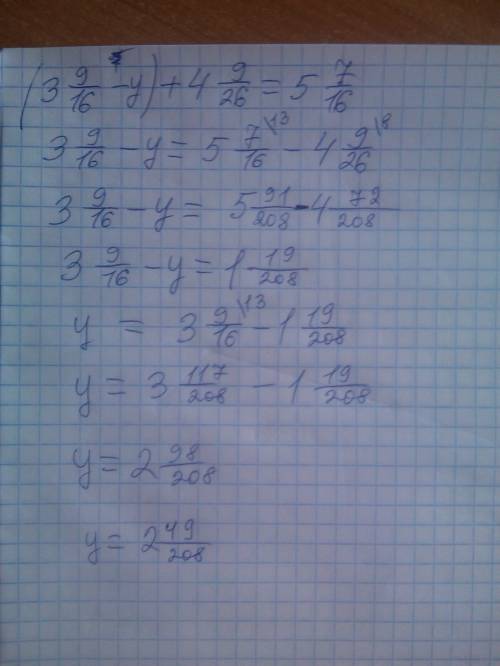 (3 9/16 - y) + 4 9/26 = 5 7/16
3 9/16 - y = 5 7/16 \13 - 4 9/26 \8
3 9/16 - y = 5 91/208 - 4 72/208
3 9/16 - y = 1 19/208
y = 3 9/16 \13 - 1 19/208
y = 3 117/208 - 1 19/208
y = 2 98/208
y = 2 49/208